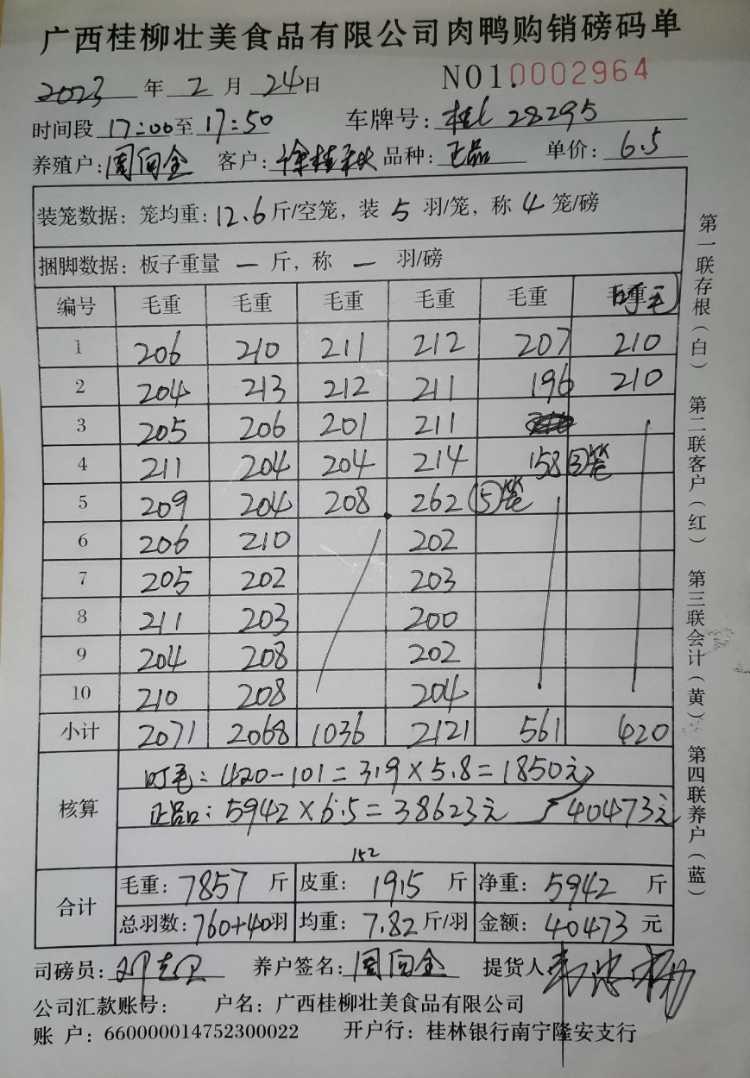 广西桂柳壮美食品有限公司肉鸭购销磅码单
2023 年 2 月 24日 NO1.0002964
时间段 17:00至17:50 车牌号: 桂L 28295
养殖户:周向全 客户:徐桂秋 品种:正品 单价:6.5
装笼数据:笼均重:12.6斤/空笼,装 5 羽/笼,称 4 笼/磅
捆脚数据:板子重量 — 斤,称 — 羽/磅
编号 毛重 毛重 毛重 毛重 毛重 叮毛
1 206 210 211 212 207 210
2 204 213 212 211 196 210
3 205 206 201 211
4 211 204 204 214 158 ③笼
5 209 204 208 262 ⑤笼
6 206 210 202
7 205 202 203
8 211 203 200
9 204 208 202
10 210 208 204
小计 2071 2068 1036 2121 561 420
核算
叮毛:420-101=319×5.8=1850元
正品:5942×6.5=38623元 40473元
152
合计
毛重:7857 斤 皮重:1915 斤 净重:5942 斤
总羽数:760+40羽 均重:7.82斤/羽 金额:40473 元
司磅员: 养户签名:周向全 提货人
公司汇款账号: 户名:广西桂柳壮美食品有限公司
账 户:660000014752300022 开户行:桂林银行南宁隆安支行
第一联存根(白) 第二联客户(红) 第三联会计(黄) 第四联养户(蓝)